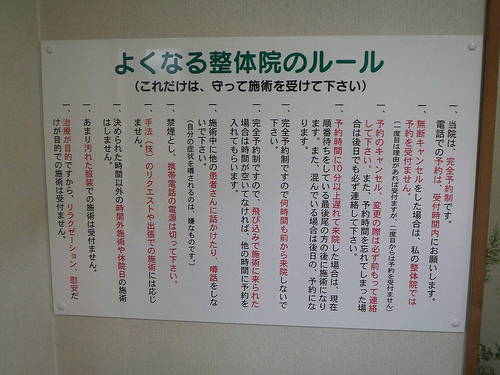 よくなる整体院のルール
（これだけは、守って施術を受けて下さい）
一、当院は、完全予約制です。
電話での予約は、受付時間内にお願いします。
一、無断キャンセルをした場合は、私の整体院では
予約を受付ません。
（一度目は理由があれば受付ますが、二度目からは予約を受付ません）
一、予約のキャンセル、変更の際は必ず前もって連絡
して下さい。また、予約時間を忘れてしまった場
合は後日でも必ず連絡して下さい。
一、予約時間に10分以上遅れて来院した場合は、現在
順番待ちをしている最後尾の方の後に施術になり
ます。また、混んでいる場合は後日の、予約にな
ります。
一、完全予約制ですので何時間も前から来院しないで
下さい。
一、完全予約制ですので、飛び込みで施術に来られた
場合は時間が空いてなければ、他の時間に予約を
入れてもらいます。
一、施術中に他の患者さんに話かけたり、噂話をしな
いで下さい。
（自分の症状を噂されるのは、嫌なものです。）
一、禁煙とし、携帯電話の電源は切って下さい。
一、手法（技）のリクエストや出張での施術には応じ
ません。
一、決められた時間以外の時間外施術や休院日の施術
はしません。
一、あまり汚れた服装での施術は受付ません。
一、治療が目的ですから、リラクゼーション、慰安だ
けが目的での施術は受付ません。